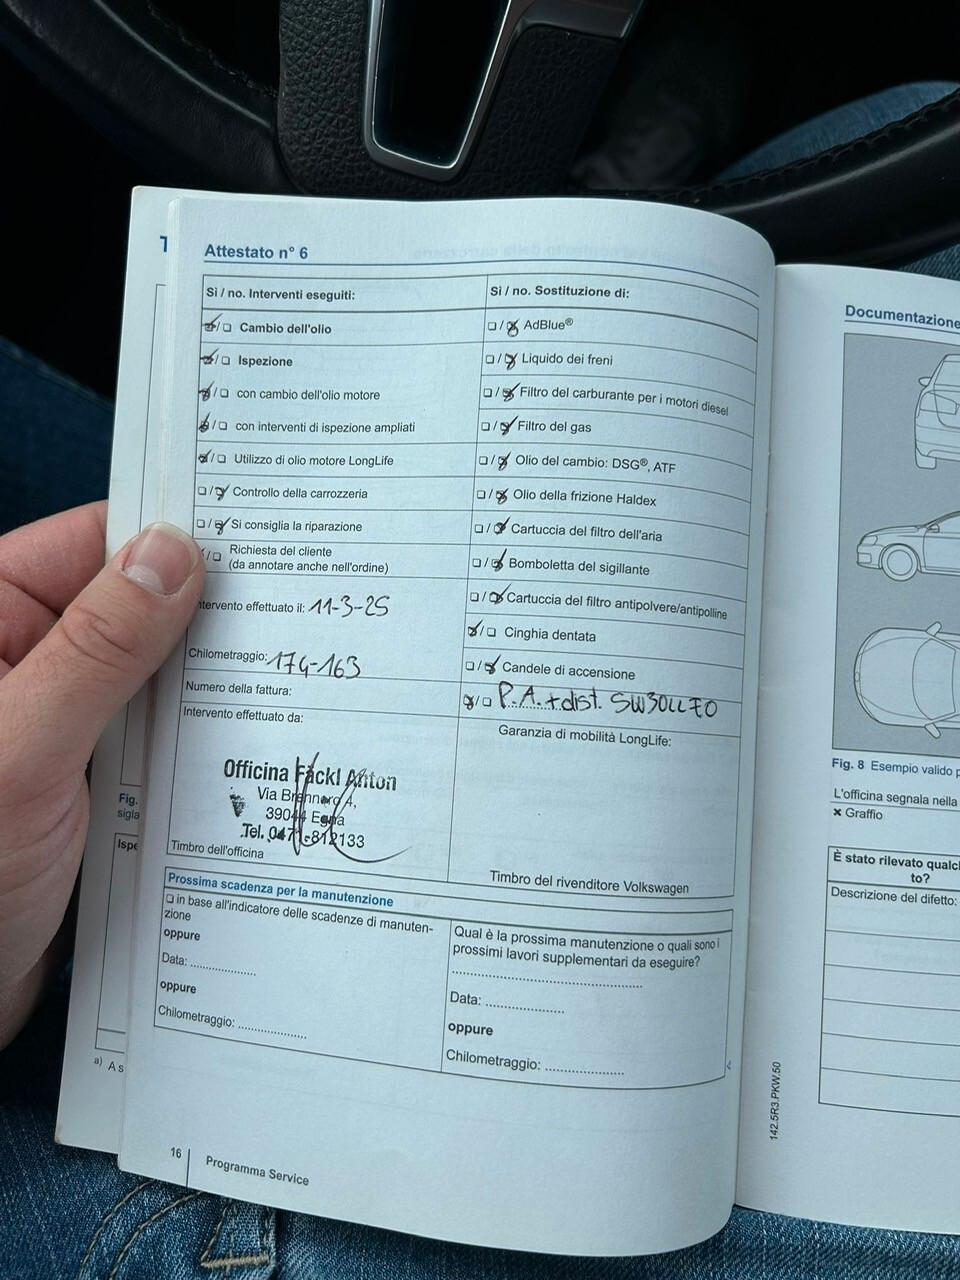 Attestato n° 6
Sì / no. Interventi eseguiti:
❏ / ❏ Cambio dell'olio
❏ / ❏ Ispezione
❏ / ❏ con cambio dell'olio motore
❏ / ❏ con interventi di ispezione ampliati
❏ / ❏ Utilizzo di olio motore LongLife
❏ / ❏ Controllo della carrozzeria
❏ / ❏ Si consiglia la riparazione
/ ❏ Richiesta del cliente
(da annotare anche nell'ordine)
ntervento effettuato il: 11-3-25
Chilometraggio: 174-163
Numero della fattura:
Intervento effettuato da:
Officina Fackl Anton
Via Brennero 4,
39044 Egna
Tel. 0471-812133
Timbro dell'officina
Sì / no. Sostituzione di:
❏ / ❏ AdBlue®
❏ / ❏ Liquido dei freni
❏ / ❏ Filtro del carburante per i motori diesel
❏ / ❏ Filtro del gas
❏ / ❏ Olio del cambio: DSG®, ATF
❏ / ❏ Olio della frizione Haldex
❏ / ❏ Cartuccia del filtro dell'aria
❏ / ❏ Bomboletta del sigillante
❏ / ❏ Cartuccia del filtro antipolvere/antipolline
❏ / ❏ Cinghia dentata
❏ / ❏ Candele di accensione
❏ / ❏ P.A. + dist. 5W30LL FO
Garanzia di mobilità LongLife:
Timbro del rivenditore Volkswagen
Prossima scadenza per la manutenzione
❏ in base all'indicatore delle scadenze di manuten-
zione
oppure
Data: ....................
oppure
Chilometraggio: ....................
Qual è la prossima manutenzione o quali sono i
prossimi lavori supplementari da eseguire?
..........................................................
Data: ........................
oppure
Chilometraggio: ........................
16
Programma Service
Fig.
sigla
Ispe
a) A s
142.5R3.PKW.50
Documentazione
Fig. 8 Esempio valido p
L'officina segnala nella
✖ Graffio
È stato rilevato qualc
to?
Descrizione del difetto: